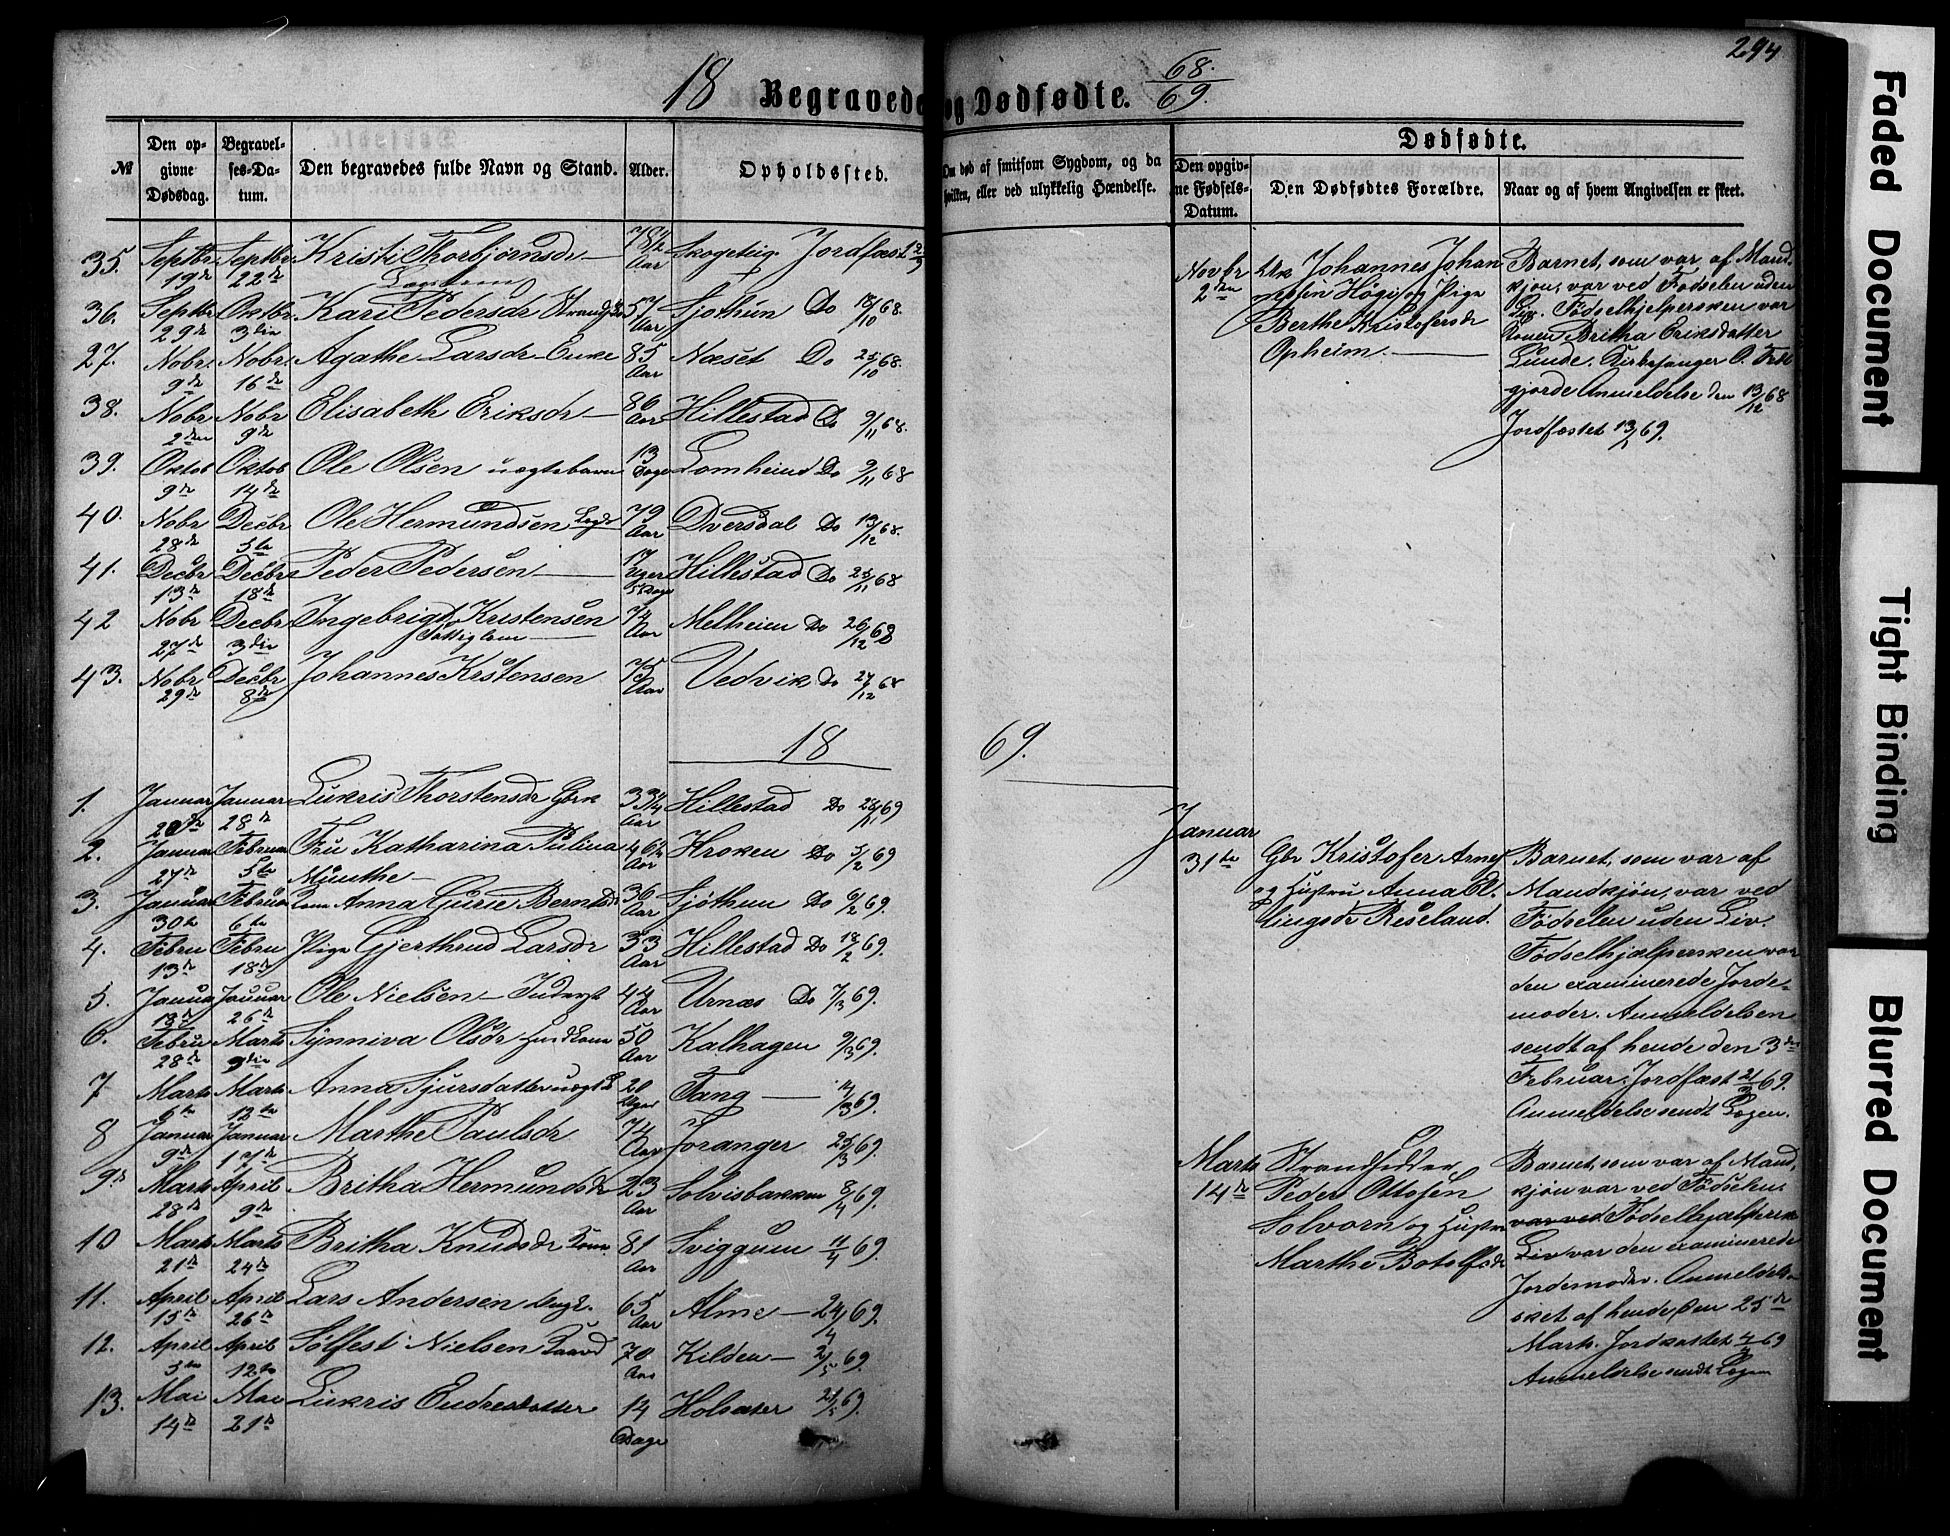 294
18 Begravede og Dødfødte. 68./69.
№ Den opgivne Dødsdag. Begravelses-Datum. Den begravedes fulde Navn og Stand. Alder. Opholdssted. Om død af smitsom Sygdom, og da hvilken, eller ved ulykkelig Hændelse.
Dødfødte.
Den opgivne Fødsels-Datum. Den Dødfødtes Forældre. Naar og af hvem Angivelsen er skeet.
35. Septbr 19de Septbr 22de Kristi Thorbjørnsdr Aar Skogeteig Jordfæst
36. Septbr 29de Oktbr 3die Kari Pedersdr 57 Aar Sjøthun Do 18/10 68.
27. Nobr. 9de Nobr. 16de Agathe Larsdr Enke 85 Aar Næset Do 25/10 68.
38. Nobr 2den Nobr 9de Elisabeth Eriksdr 86 Aar Hillestad Do 9/11 68.
39. Oktob 9de Oktob 14de Ole Olsen uægtebarn 13 Dage Lomheim Do 9/11 68
40. Nobr 28de Decbr 5te Ole Hermundsen 79 Aar Dversdal Do 13/12 68.
41. Decbr 13de Decbr 18de Peder Pedersen 17 Uger 5 Dage Hillestad Do 68
42 Nobr 27de Decbr 3die Ingebrigt Kristensen Fattiglem 72 Aar Melheim Do 26/12 68
43. Nobr 29de Decbr 8de Johannes Krstensen 75 Aar Vedvik Do 27/12 68
18 69.
1. Januar Januar 28de Lukris Thorstensdr Gbrk 33 3/4 Aar Hillestad Do 69
2. Januar 27de Februar 5te Fru Katharina Pulina Munthe 46 1/2 Aar Kroken Do 5/2 69
3. Januar 30te Februar 6te Kone Anna Gurie Berntsdr 36 Aar Sjøthun Do 6/2 69.
4. Febru 13de Febru 18de Pige Gjerthrud Larsdr 33 Aar Hillestad Do 18/2 69.
5. Januar 13de Januar 26de Ole Nielsen 44 Aar Urnæs Do 7/3 69.
6. Febru 28de Marts 9die Synniva Olsdr 50 Aar Kalhagen 9/3 69.
7 Marts 6te Marts 12te Anna Sjursdatter uægte 20 Uger Tang 14/3 69.
8 Januar 9de Januar 17de Marthe Paulsdr 74 Aar Joranger 25/3 69.
9de Marts 28de April 9de Britha Hermundsdr 23 Aar Solvisbakken 8/4 69.
10 Marts 21de Marts 24de Britha Knudsdr Kone 81 Aar Sviggum 11/4 69.
11. April 15de April 26de Lars Andersen Ungk. 65 Aar Alme 24/4 69.
12. April 5te April 12te Sølfest Nielsen 70 Aar Kilden 2/5 69.
13. Mai 14de Mai 21de Lukris Endresdatter 14 Dage Holsæter 21/5 69.
Novbr 2den Ungk Johannes Johannessen Høgi og Pige Berthe Kristofersdr Opheim.
Barnet, som var af Mand-
kjøn, var ved Fødselen uden
Liv. Fødselhjelpersken var
Konen Britha Eriksdatter
Lunde. Kirkesanger O.
gjorde Anmeldelse den 13/12 68
Jordfæstet 69.
Januar 31te Gbr Kristofer Arnes
og Hustru Anna El-
lingsdr Røseland.
Barnet, som var af
Mandkjøn, var ved
Fødselen uden Liv.
Fødselhjælpersken var
den examinerede Jorde-
moder. Anmeldelsen
sendt af hende den 3die
Februar. Jordfæst 21/3 69.
Anmeldelse sendt Lægen.
Marts 14de Strandsidder
Peder Ottosen
Solvorn og Hustru
Marthe Botolfsdr
Barnet, som var af Mand-
kjøn var ved Fødselen
var ved Fødselhjælpersk
Liv var den examinerede
Jordemoder. Anmeldels-
sket af hende den 25de
Marts. Jordfæstet 4/4 69
Anmeldelse sendt Lægen
Faded Document
Tight Binding
Blurred Document